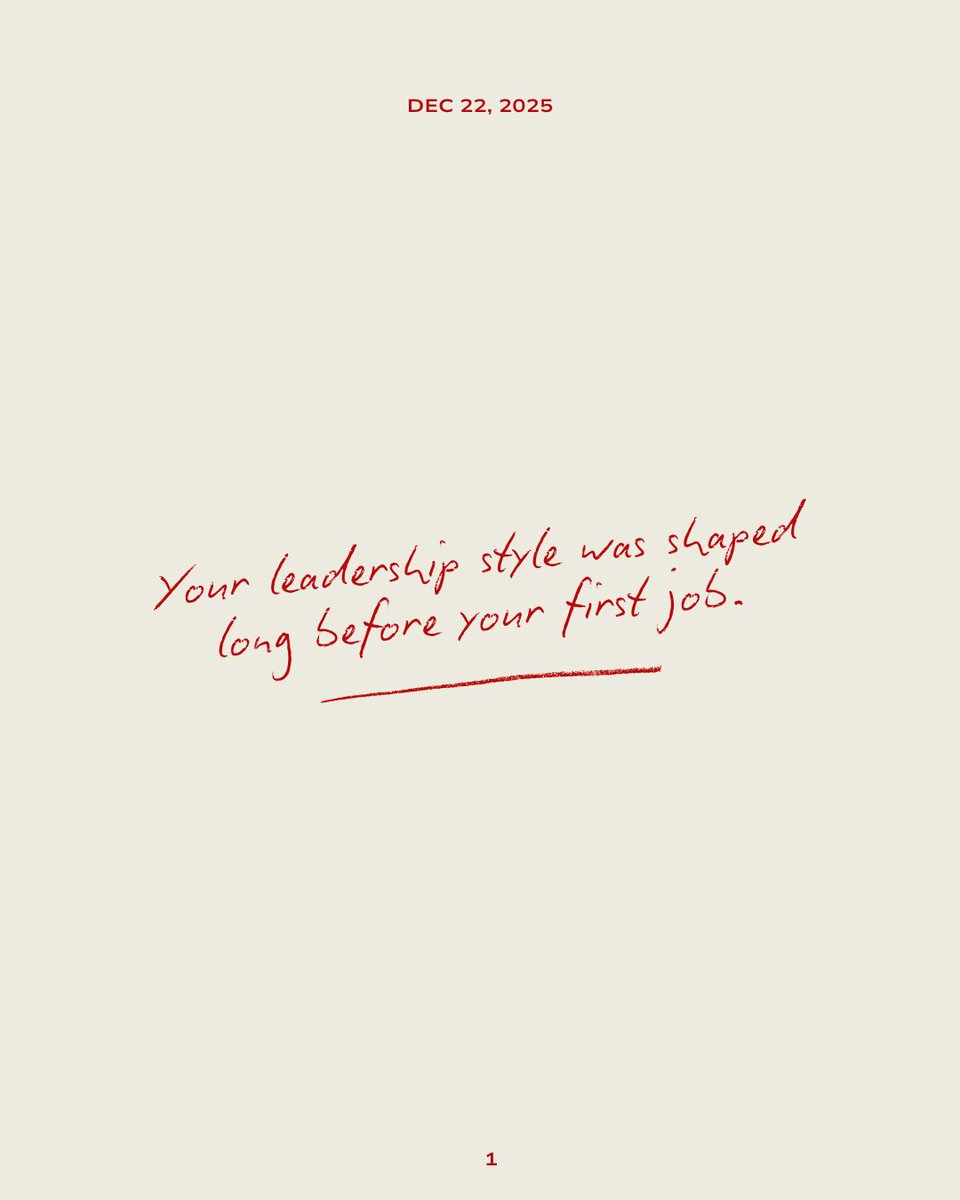 DEC 22, 2025
Your leadership style was shaped
long before your first job.
1